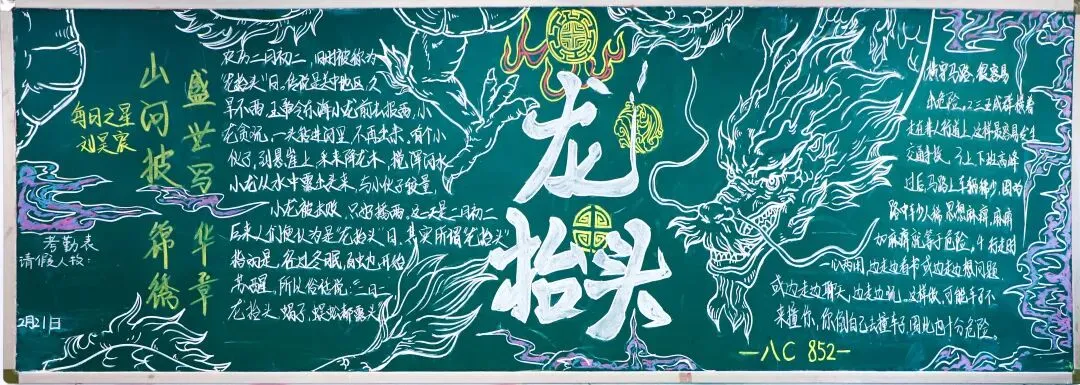 每日之星
刘昊宸
考勤表
请假人数：
2月21日
山河披锦绣
盛世写华章
农历二月初二，旧时被称为
"龙抬头"日。传说是古时地区，久
旱不雨，玉帝令东海小龙前去报雨，小
龙贪玩，一头钻进河里，不再出来，有个小
伙子，到悬崖上，采来降龙木，搅浑河水
小龙从水中露出头来，与小伙子较量，
小龙被击败，只好播雨，这天是二月初二
后来人们便认为是"龙抬头"日，其实所谓"龙抬头"
指的是，经过冬眠，百虫开始
苏醒，所以俗话说，"二月二
龙抬头，蝎子，蜈蚣都露头"
龙
抬头
横穿马路，很容易
出危险。不三五成群横着
走在非人行道上，这样最容易发生
交通事故。上下班高峰
过后，马路上车辆稀少，因为
路中车少人稀，思想麻痹，麻痹
加麻痹就等于危险。行走时
一心两用，边走边看书或边走边想问题
或边走边聊天，边走边玩。这样做，可能车子不
来撞你，你倒自己去撞车子，因此也十分危险。
一八C 852一